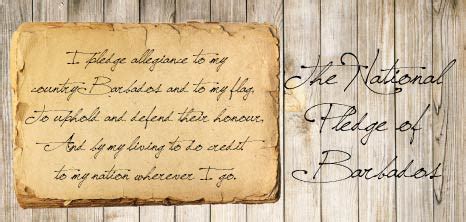 I pledge allegiance to my
country Barbados and to my flag,
To uphold and defend their honour,
And by my living to do credit
to my nation wherever I go.
The National
Pledge of
Barbados